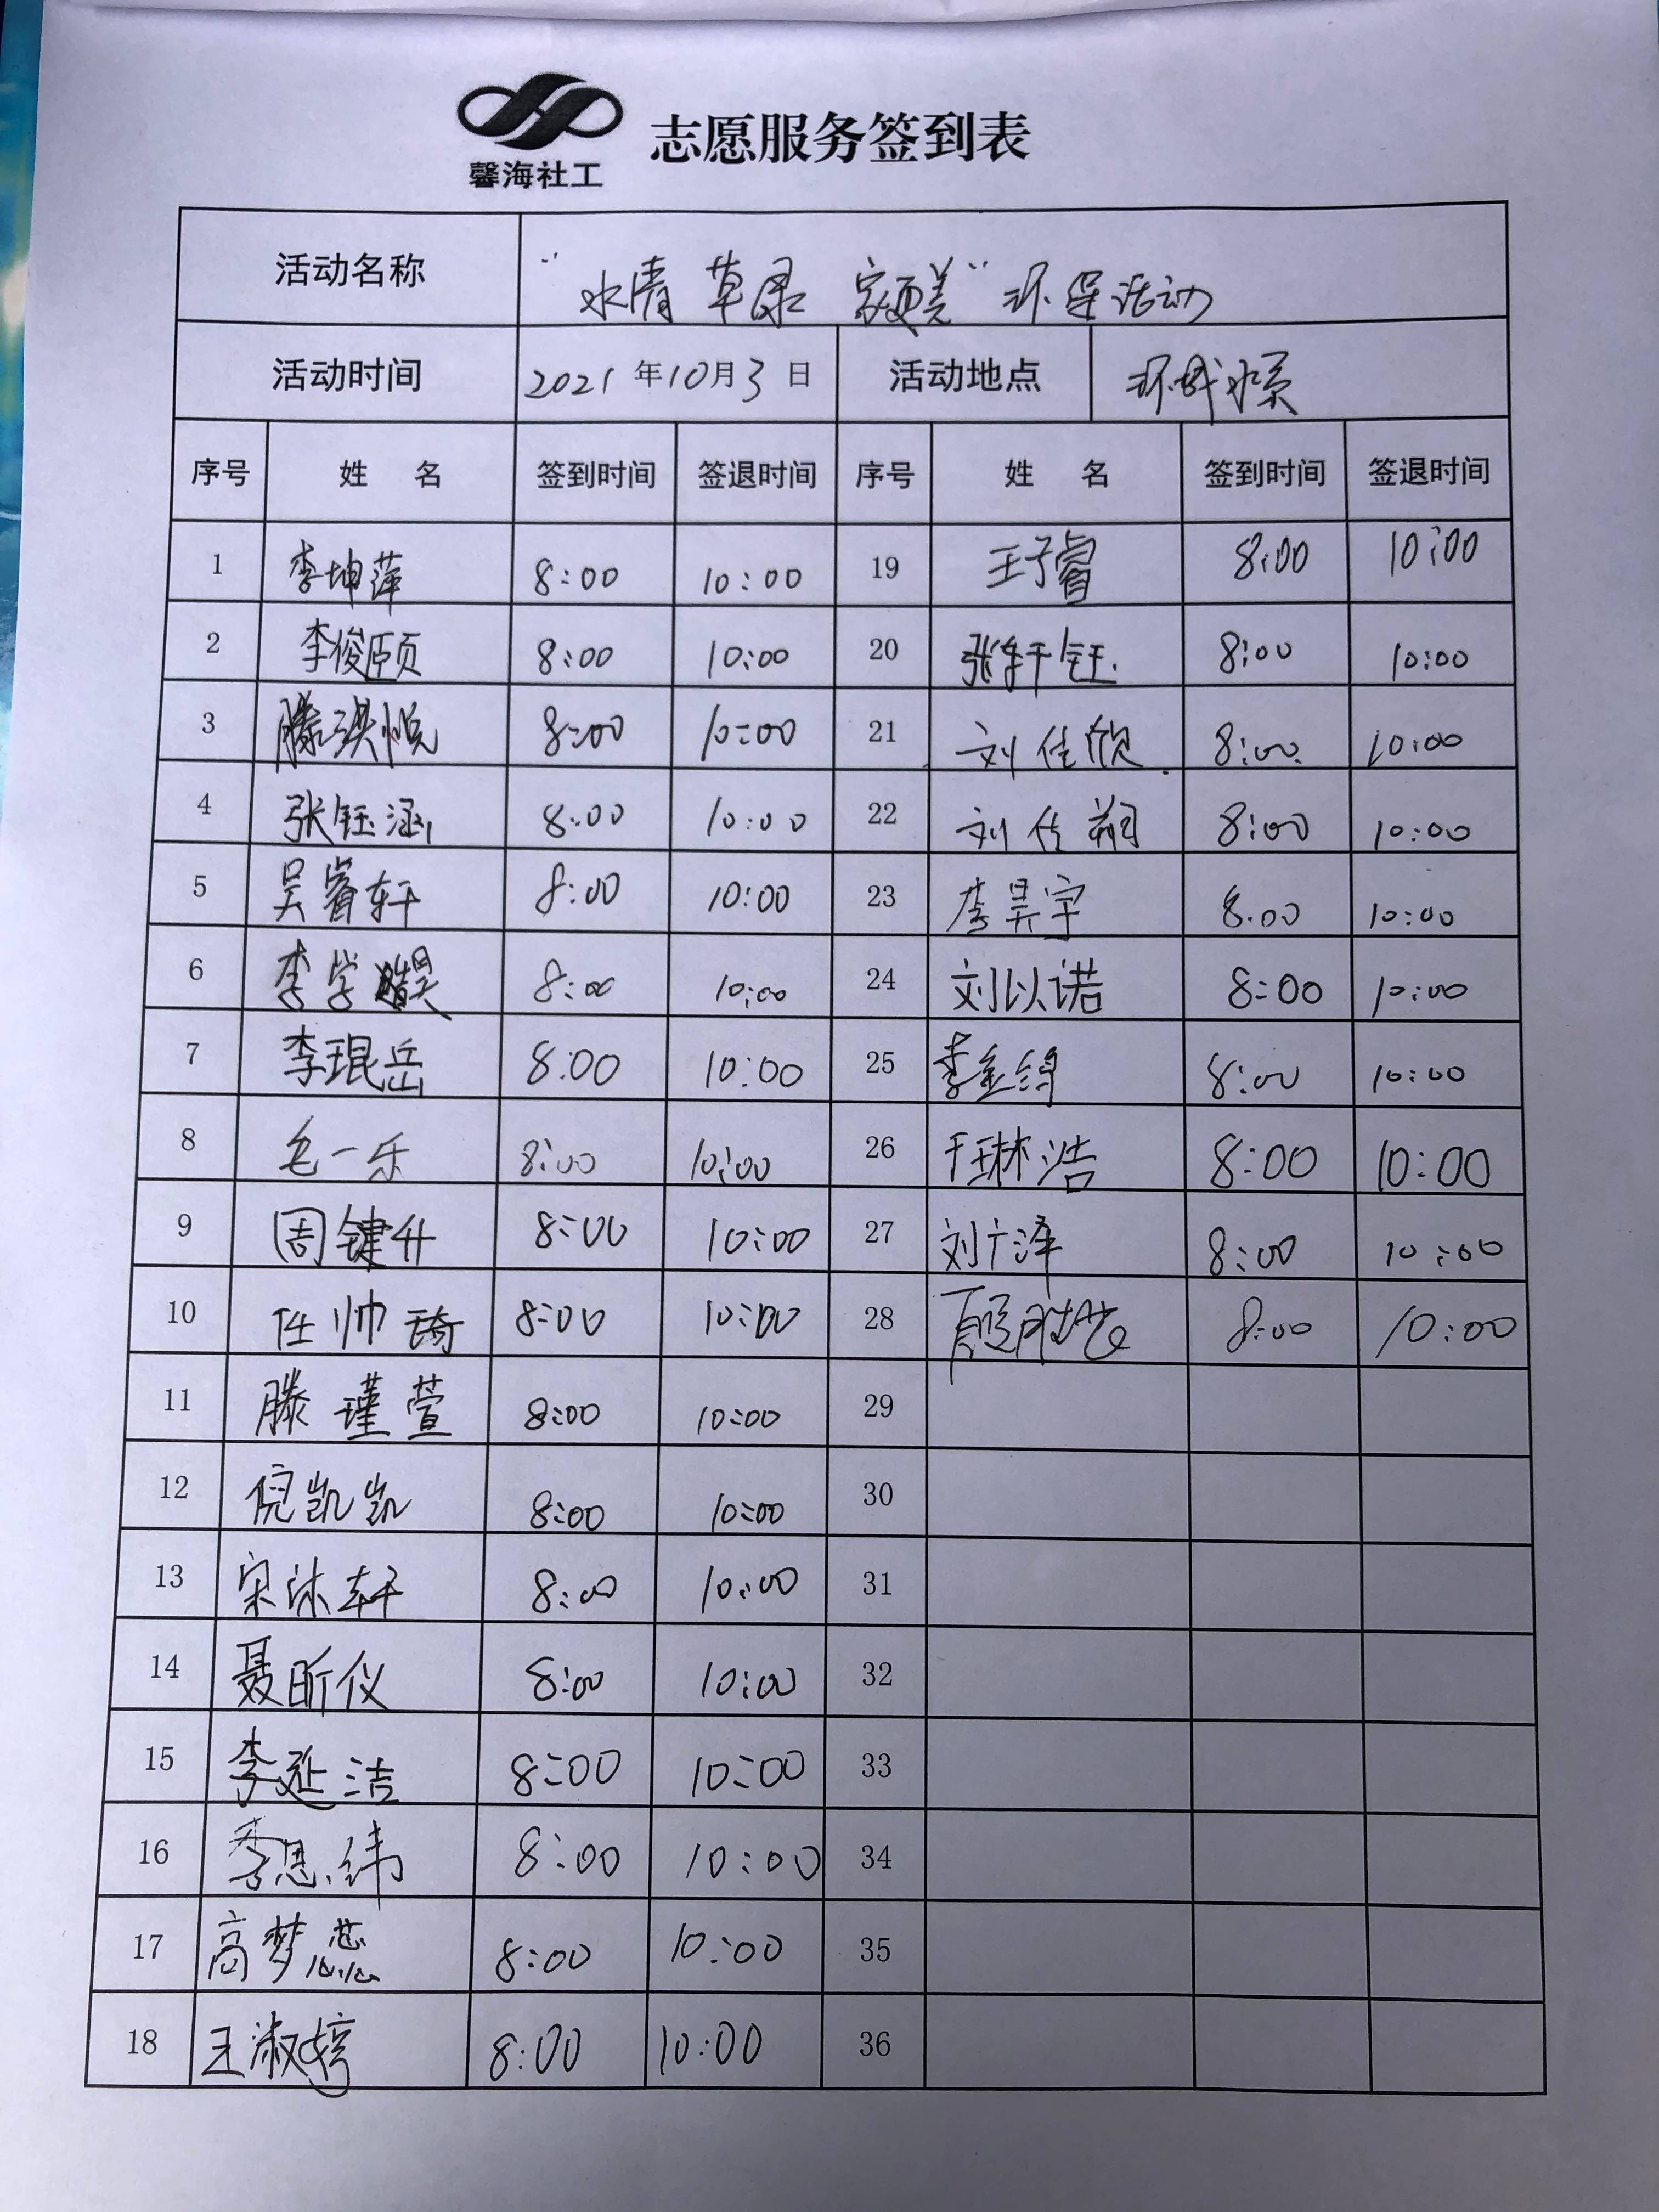 馨海社工
志愿服务签到表
活动名称 "水清 草绿 家更美"环保活动
活动时间 2021年10月3日 活动地点 环城水系
序号 姓 名 签到时间 签退时间 序号 姓 名 签到时间 签退时间
1 李坤萍 8:00 10:00 19 王子睿 8:00 10:00
2 李俊颐 8:00 10:00 20 张轩钰 8:00 10:00
3 滕淇悦 8:00 10:00 21 刘佳欣 8:00 10:00
4 张钰涵 8:00 10:00 22 刘佳翔 8:00 10:00
5 吴睿轩 8:00 10:00 23 李昊宇 8:00 10:00
6 李学 8:00 10:00 24 刘以诺 8:00 10:00
7 李琨岳 8:00 10:00 25 李金 8:00 10:00
8 毛一乐 8:00 10:00 26 于琳浩 8:00 10:00
9 周键升 8:00 10:00 27 刘广泽 8:00 10:00
10 任帅琦 8:00 10:00 28 8:00 10:00
11 滕瑾萱 8:00 10:00 29
12 倪凯凯 8:00 10:00 30
13 宋沐轩 8:00 10:00 31
14 聂昕仪 8:00 10:00 32
15 李延洁 8:00 10:00 33
16 李思纬 8:00 10:00 34
17 高梦蕊 8:00 10:00 35
18 王淑婷 8:00 10:00 36